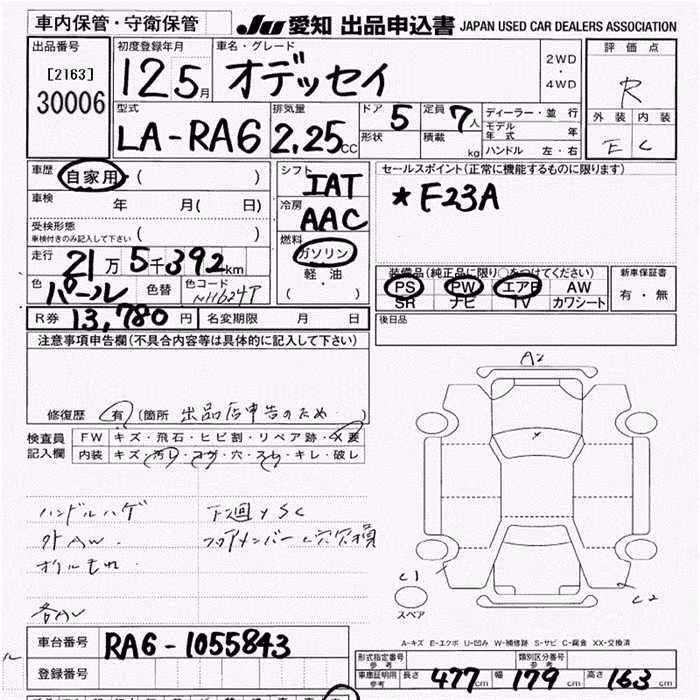 車内保管・守衛保管
JU 愛知 出品申込書 JAPAN USED CAR DEALERS ASSOCIATION
出品番号
[2163]
30006
初度登録年月
12 5月
車名・グレード
オデッセイ
2WD
・
4WD
評価点
R
外装 内装
E C
型式
LA-RA6
排気量
2.25cc
ドア 5
形状
定員 7人
積載 kg
ディーラー・並行
モデル年式 年
ハンドル 左・右
車歴 自家用・( )
車検 年 月( 日)
受検形態
車検付きのみ記入して下さい ( )
走行 21万5千392km
色 パール 色替 色コード NH624P
R券 13,780円 名変期限 月 日
シフト
IAT
冷房
AAC
燃料
ガソリン
軽・油
( )
セールスポイント(正常に機能するものに限ります)
★F23A
装備品(純正品に限り○をつけてください)
PS PW エアB AW
SR ナビ TV カワシート
新車保証書
有・無
後日品
注意事項申告欄(不具合内容等は具体的に記入して下さい)
修復歴 有 (箇所 出品店申告のため
検査員
記入欄
FW キズ・飛石・ヒビ割・リペア跡・X要
内装 キズ・汚レ・コゲ・穴・スレ・キレ・破レ
ハンドルハゲ
外AW
オイルもれ
各AW
下廻りSC
フロアメンバー穴欠損
A2
C1
C2
スペア
A-キズ E-エクボ U-凹み W-補修跡 S-サビ C-腐食 XX-交換済
車台番号 RA6-1055843
登録番号
形式指定番号
参考
類別区分番号
参考
車庫証明用
参考
長さ 477cm 幅 179cm 高さ 163cm